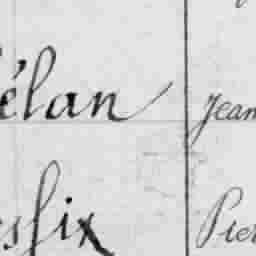 élan Jean
sfix Pier